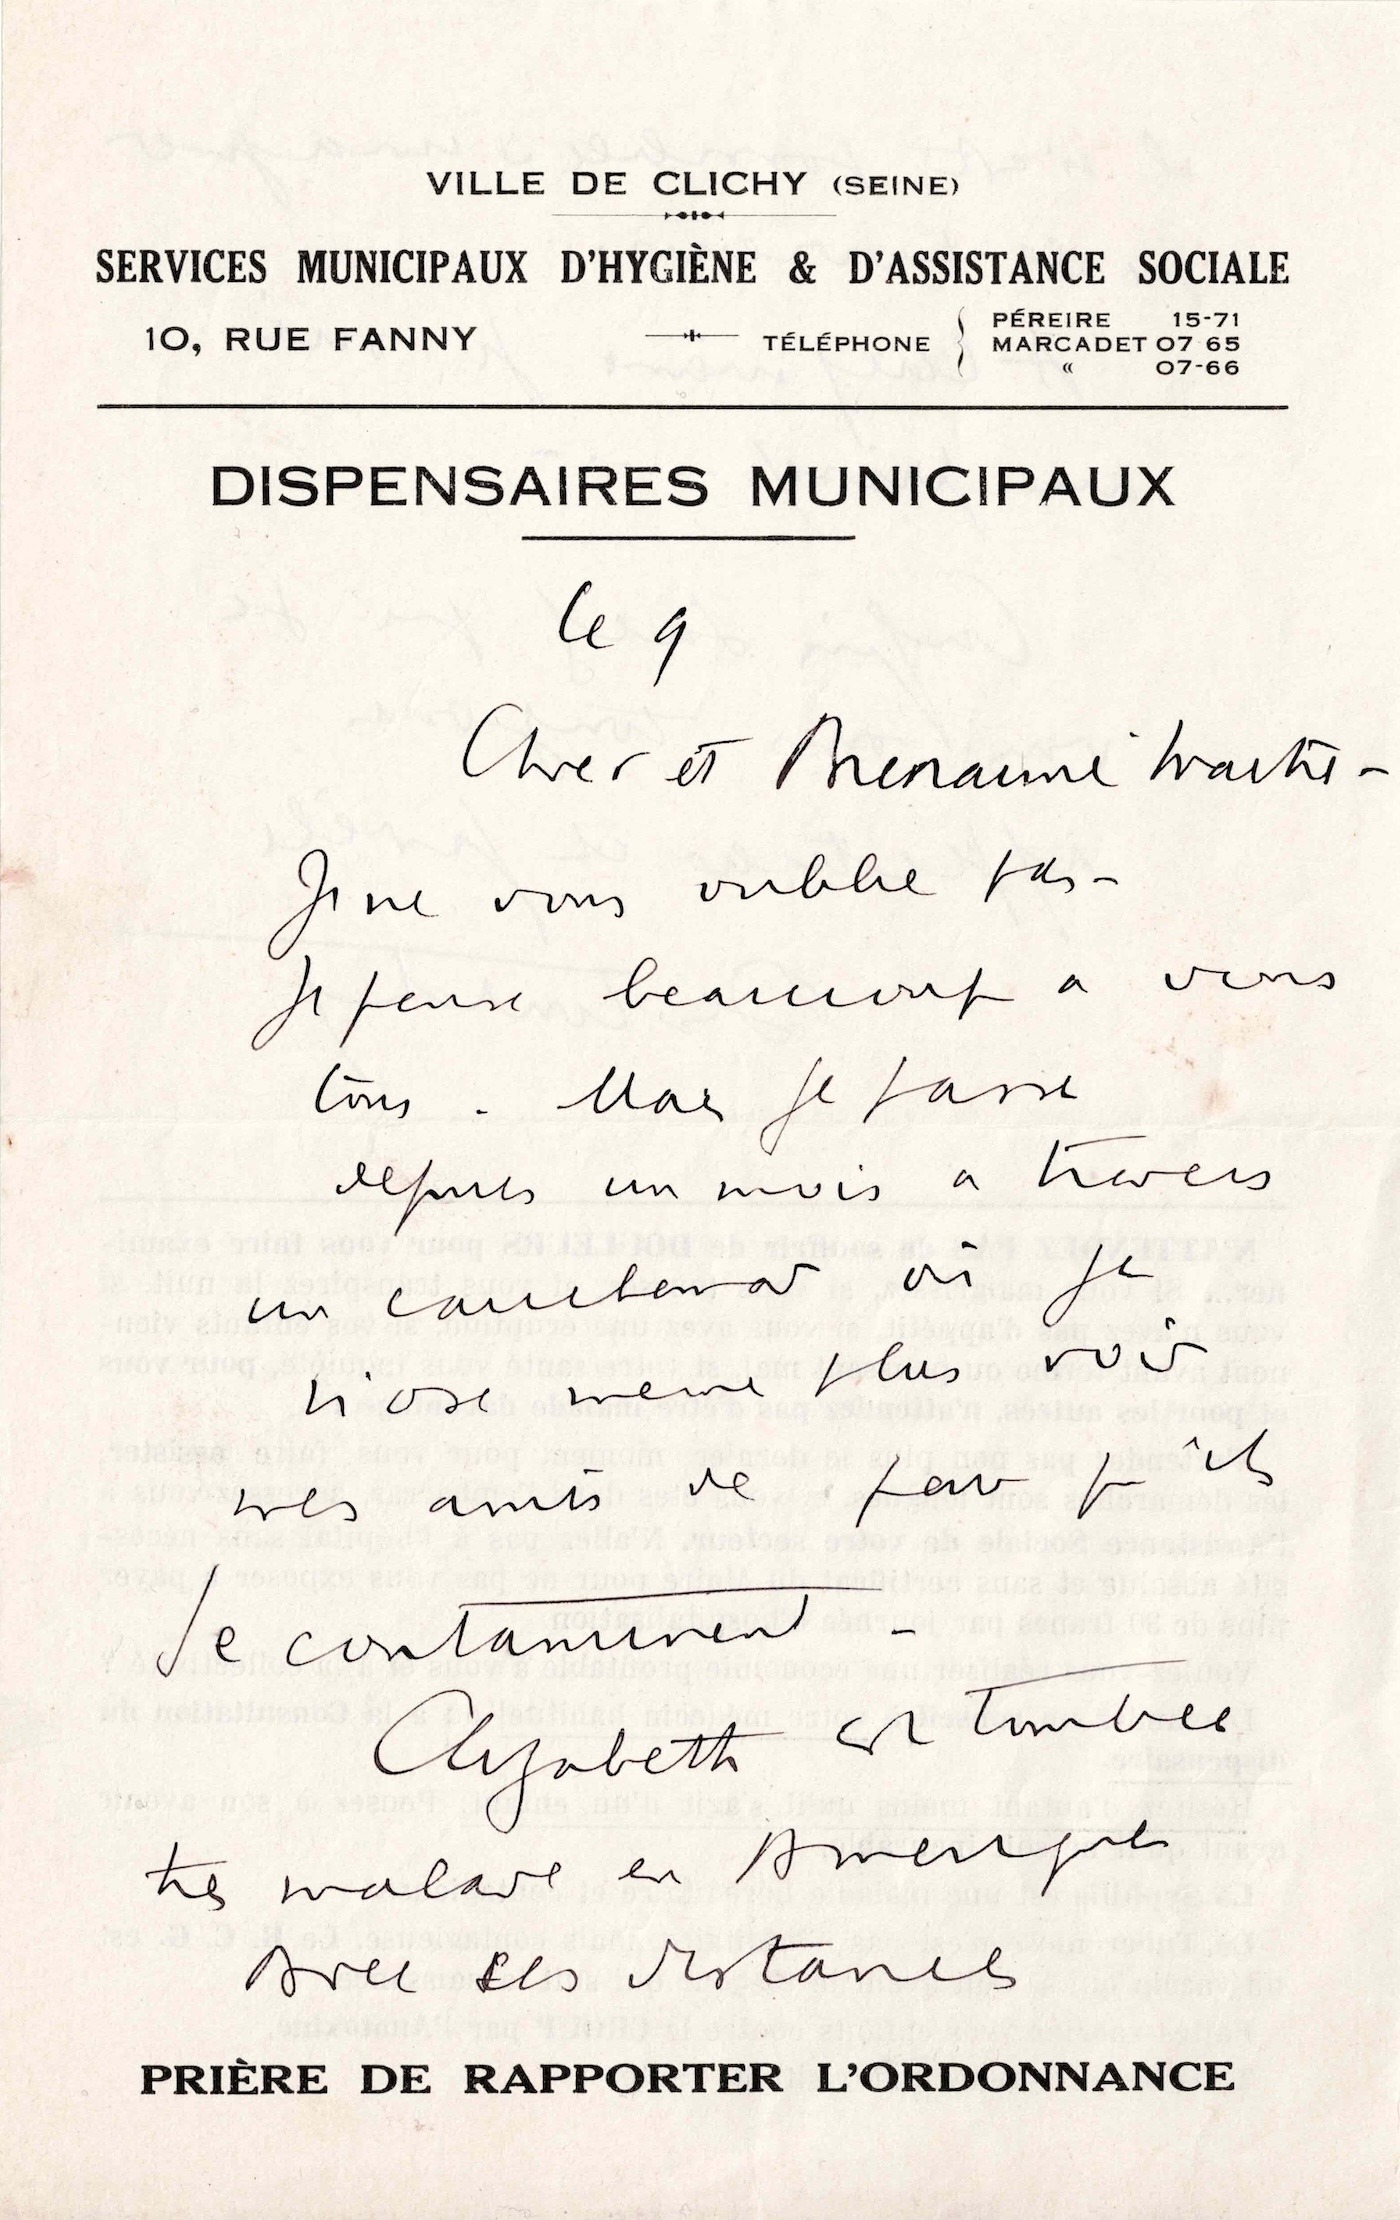 VILLE DE CLICHY (SEINE)
SERVICES MUNICIPAUX D'HYGIÈNE & D'ASSISTANCE SOCIALE
10, RUE FANNY TÉLÉPHONE PÉREIRE 15-71
MARCADET 07 65
« 07-66
DISPENSAIRES MUNICIPAUX
le 9
Cher et Bienaimé Maitre -
Je ne vous oublie pas -
Je pense beaucoup a vous
tous . Mais je passe
depuis un mois a travers
un cauchemar où je
n'ose meme plus voir
mes amis de peur qu'ils
se contaminent -
Elizabeth est tombée
tres malade en Amerique
Avec ces distances
PRIÈRE DE RAPPORTER L'ORDONNANCE